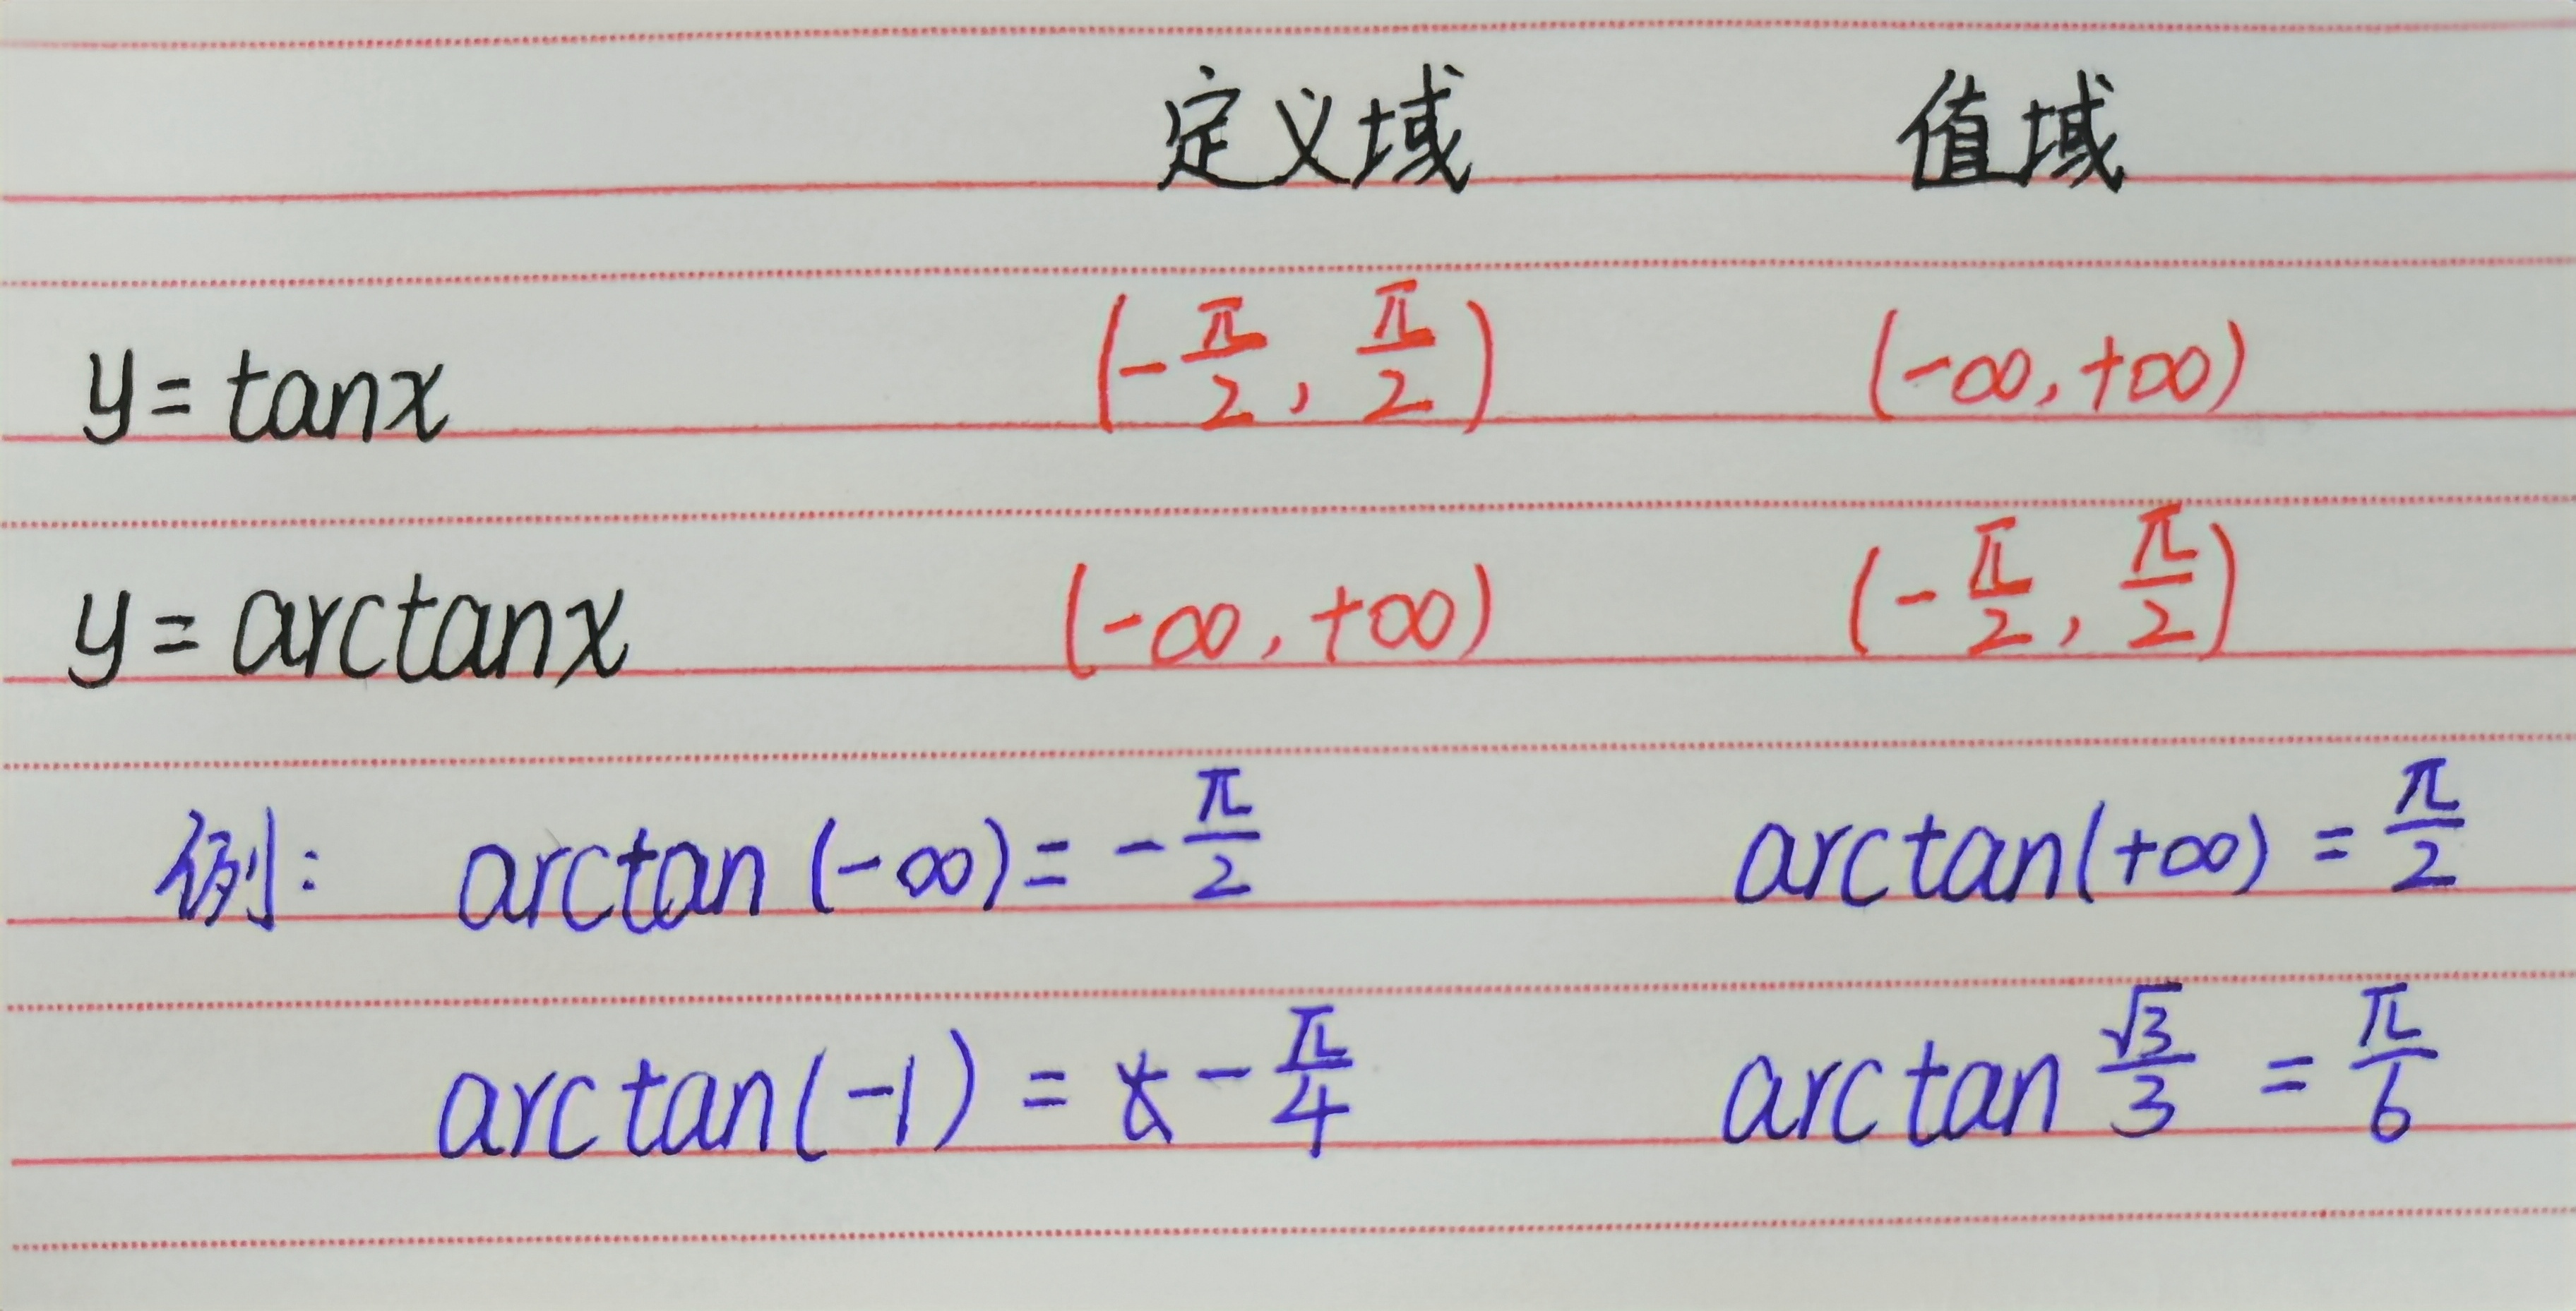 定义域 值域
y=tanx (-π/2, π/2) (-∞,+∞)
y=arctanx (-∞,+∞) (-π/2, π/2)
例: arctan(-∞)=-π/2 arctan(+∞)=π/2
arctan(-1)=-π/4 arctan √3/3 =π/6